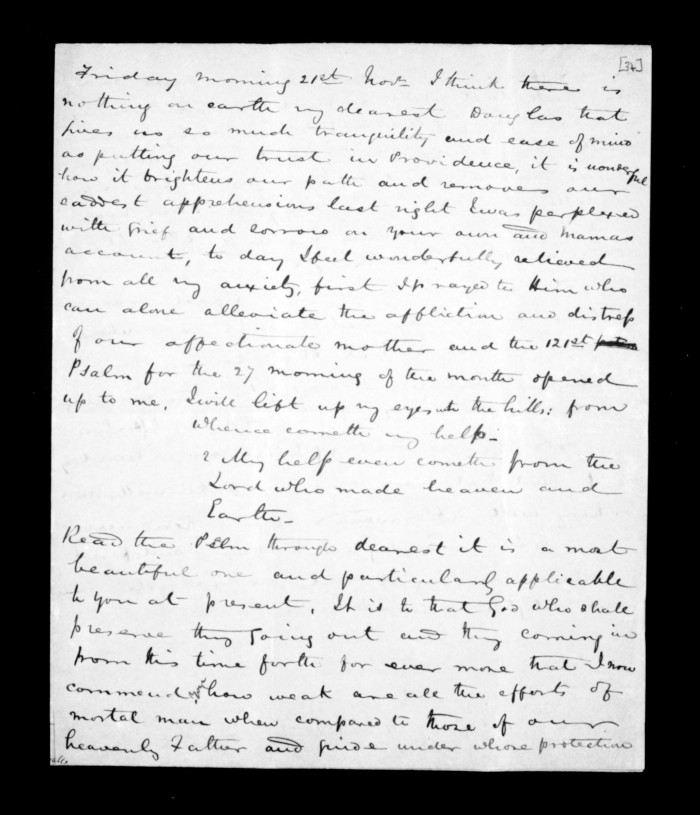 [34]
Friday morning 21st Novr I think there is
nothing on earth my dearest Douglas that
gives us so much tranquility and ease of mind
as putting our trust in Providence, it is wonderful
how it brightens our path and removes our
saddest apprehensions last night I was perplexed
with grief and sorrow on your own and Mamas
account, to day I feel wonderfully relieved
from all my anxiety, first I prayed to Him who
can alone alleviate the affliction and distress
of our affectionate mother and the 121st
Psalm for the 27 morning of the month opened
up to me. I will lift up my eyes unto the hills: from
whence cometh my help -
2 My help even cometh from the
Lord who made heaven and
Earth -
Read the Pslm through dearest it is a most
beautiful one and particularly applicable
to you at present. It is to that God who shall
preserve thy going out and thy coming in
from this time forth for ever more that I now
commend how weak are all the efforts of
mortal man when compared to those of our
heavenly Father and guide under whose protection